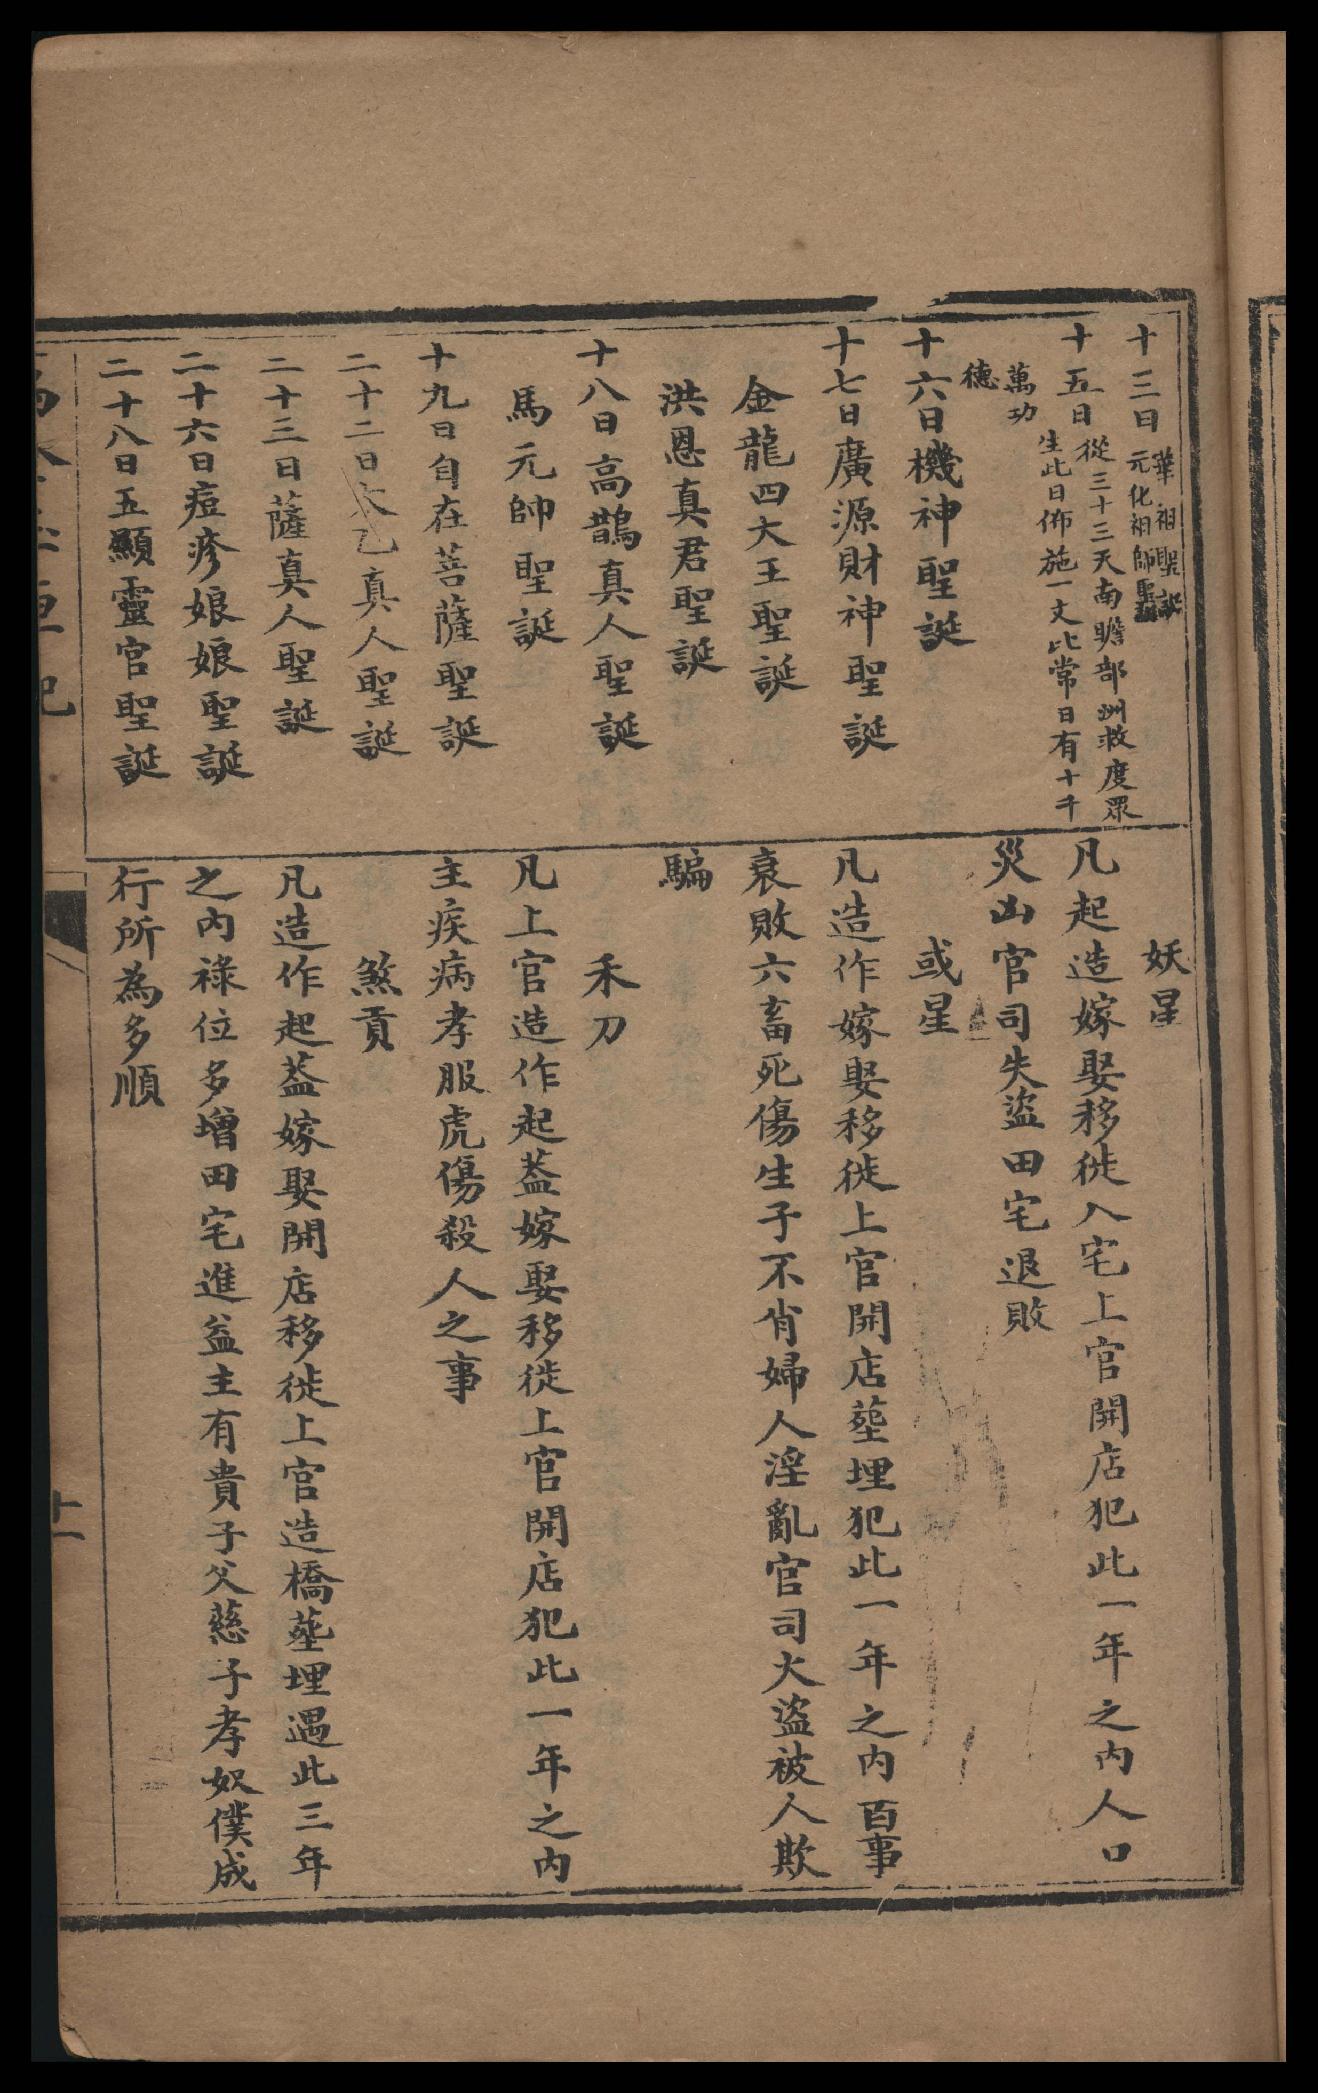 十三日華祖聖誕
元化祖師聖誕
十五日從三十三天南瞻部洲救度眾
生此日佈施一文比常日有十千
萬功
德
十六日機神聖誕
十七日廣源財神聖誕
金龍四大王聖誕
洪恩真君聖誕
十八日高鵲真人聖誕
馬元帥聖誕
十九日自在菩薩聖誕
二十二日太乙真人聖誕
二十三日薩真人聖誕
二十六日痘疹娘娘聖誕
二十八日五顯靈官聖誕
妖星
凡起造嫁娶移徙入宅上官開店犯此一年之內人口
災凶官司失盜田宅退敗
或星
凡造作嫁娶移徙上官開店塟埋犯此一年之內百事
衰敗六畜死傷生子不肖婦人淫亂官司火盜被人欺
騙
禾刀
凡上官造作起蓋嫁娶移徙上官開店犯此一年之內
主疾病孝服虎傷殺人之事
煞貢
凡造作起蓋嫁娶開店移徙上官造橋塟埋遇此三年
之內祿位多增田宅進益主有貴子父慈子孝奴僕成
行所為多順